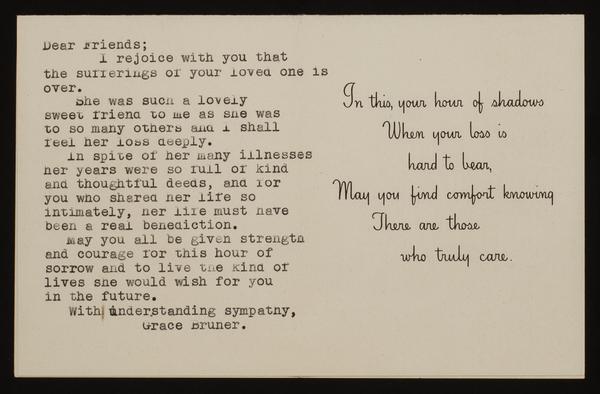 Dear Friends;
I rejoice with you that
the sufferings of your loved one is
over.
She was such a lovely
sweet friend to me as she was
to so many others and I shall
feel her loss deeply.
In spite of her many illnesses
her years were so full of kind
and thoughtful deeds, and for
you who shared her life so
intimately, her life must have
been a real benediction.
May you all be given strength
and courage for this hour of
sorrow and to live the kind of
lives she would wish for you
in the future.
With understanding sympathy,
Grace Bruner.
In this, your hour of shadows
When your loss is
hard to bear,
May you find comfort knowing
There are those
who truly care.